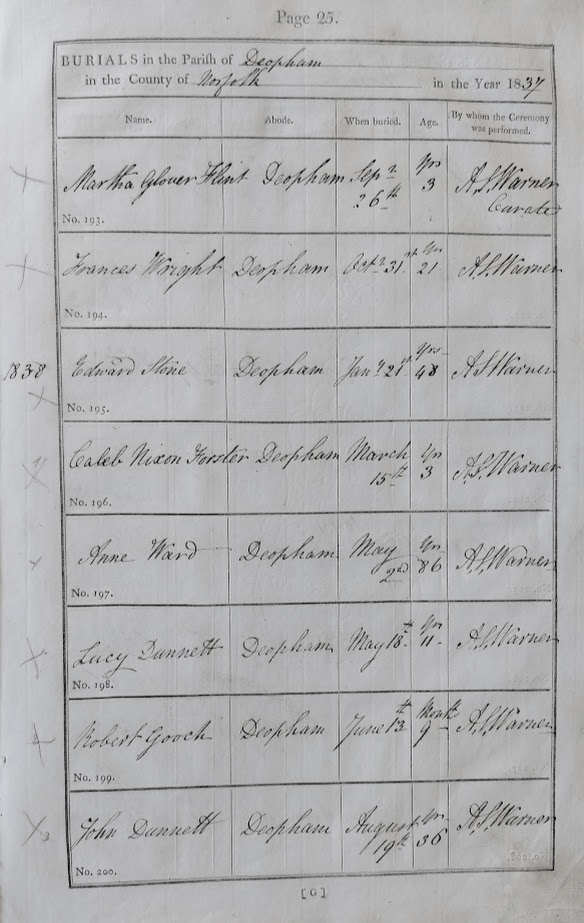 Page 25.
BURIALS in the Parish of Deopham
in the County of Norfolk in the Year 1837
Name. Abode. When buried. Age. By whom the Ceremony was performed.
Martha Glover Flint Deopham Sepr 26th Yrs 3 A S Warner Curate
No. 193.
Frances Wright Deopham Octr 31st Yrs 21 A S Warner
No. 194.
1838 Edward Stone Deopham Jany 21st Yrs 48 A S Warner
No. 195.
Caleb Nixon Forster Deopham March 15th Yr 3 A S Warner
No. 196.
Anne Ward Deopham May 2nd Yrs 86 A S Warner
No. 197.
Lucy Dunnett Deopham May 18th Yrs 11 A S Warner
No. 198.
Robert Gooch Deopham June 13th Month 9 A S Warner
No. 199.
John Dunnett Deopham August 19th Yrs 36 A S Warner
No. 200.
[G]